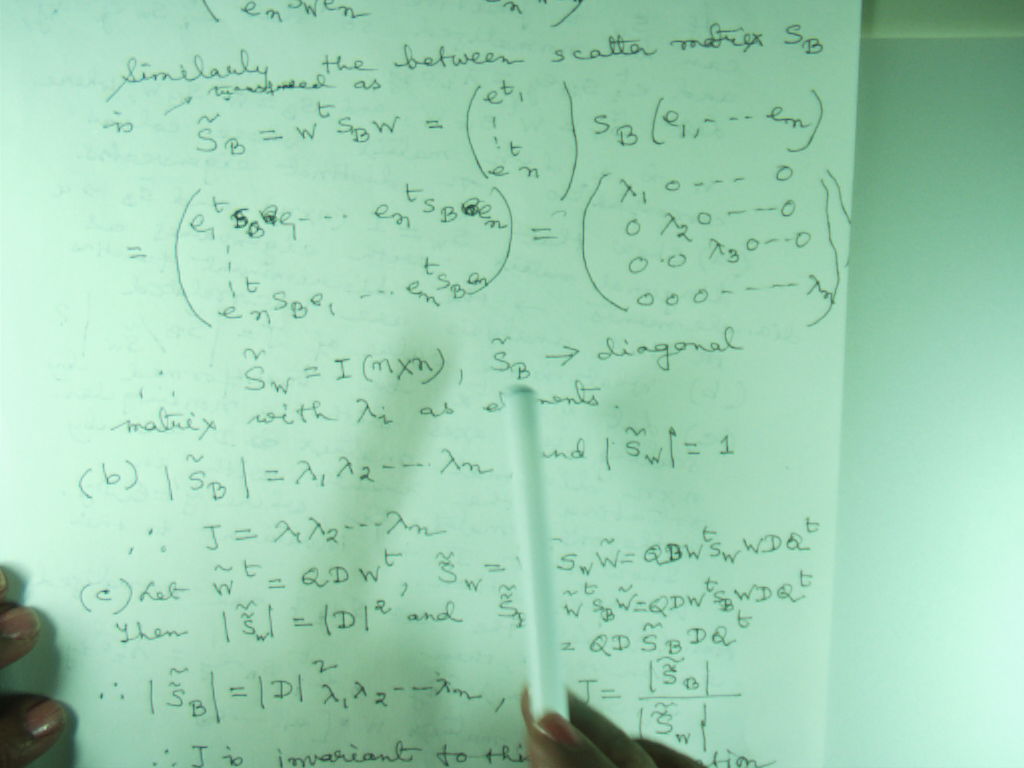 e_n^t S_W e_n
Similarly the between scatter matrix S_B
is transformed as S̃_B = W^t S_B W = (e^t_1 ⋮ e^t_n) S_B (e_1, --- e_n)
= (e_1^t S_B e_1 --- e_n^t S_B e_n ⋮ e_n^t S_B e_1 --- e_n^t S_B e_n) = (λ_1 0 --- 0
0 λ_2 0 --- 0
0 0 λ_3 0 -- 0
0 0 0 ---- λ_n)
∴ S̃_W = I (n×n), S̃_B → diagonal
matrix with λ_i as
(b) |S̃_B| = λ_1 λ_2 --- λ_n and |S̃_W| = 1
∴ J = λ_1 λ_2 --- λ_n
(c) Let W̃^t = QDW^t, S̃̃_W = S_W W̃ = QDW^t S_W WDQ^t
Then |S̃̃_W| = |D|^2 and S̃̃_B W̃^t S_B W̃ = QDW^t S_B WDQ^t
= QD S̃_B DQ^t
∴ |S̃̃_B| = |D|^2 λ_1 λ_2 --- λ_n, J = |S̃̃_B| / |S̃̃_W|
∴ J is invariant to